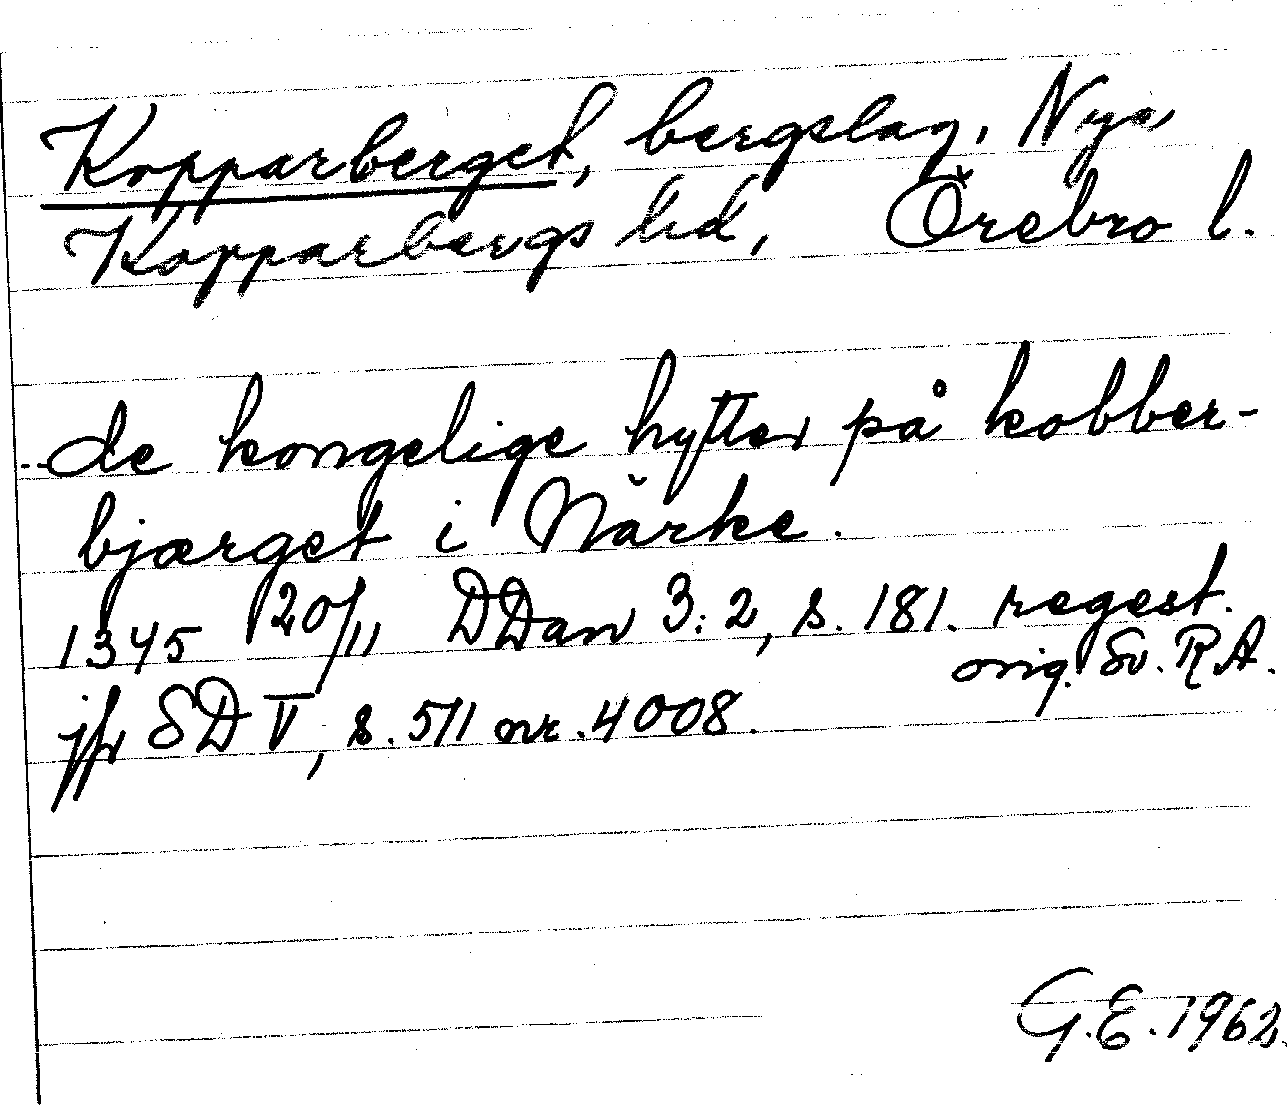 Kopparberget, bergslag, Nya
Kopparbergs hd, Örebro l.
..de kongelige hytter på kobber-
bjærget i Närke.
1345 20/11 DDan 3:2, s. 181. regest.
orig. Sv. RA.
jfr SD V, s. 511 nr. 4008.
G.E. 1962.